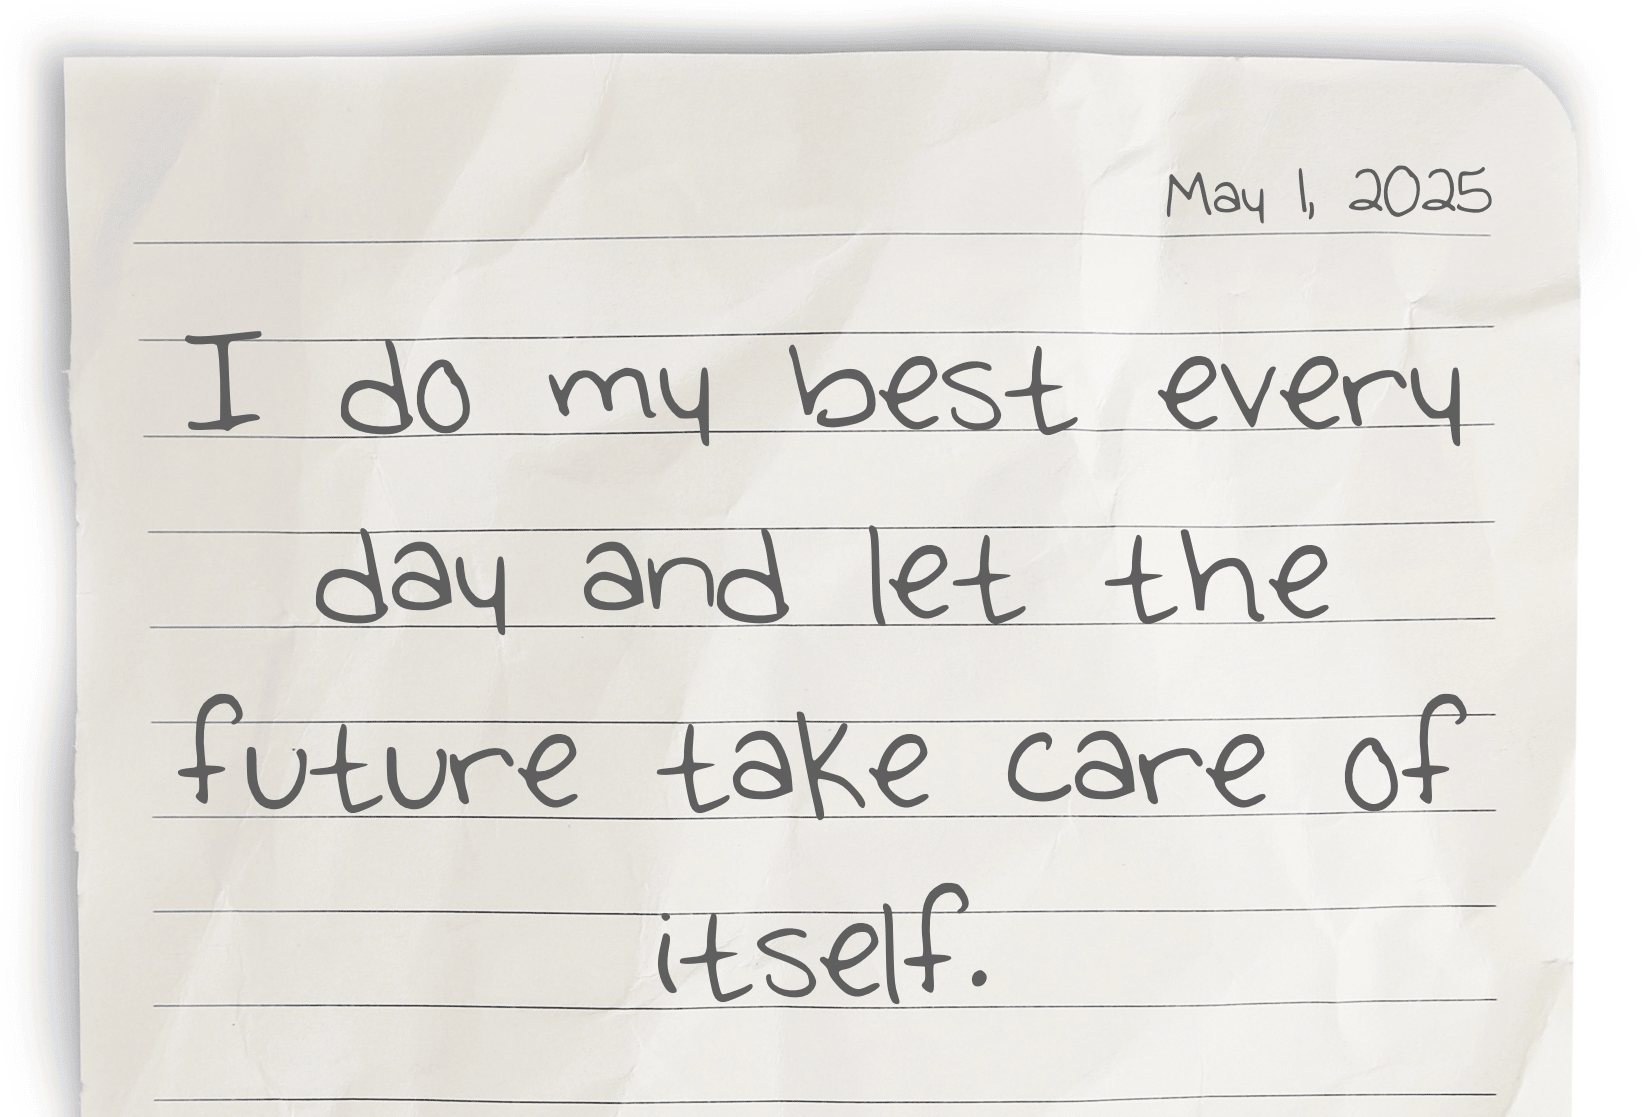 May 1, 2025
I do my best every
day and let the
future take care of
itself.